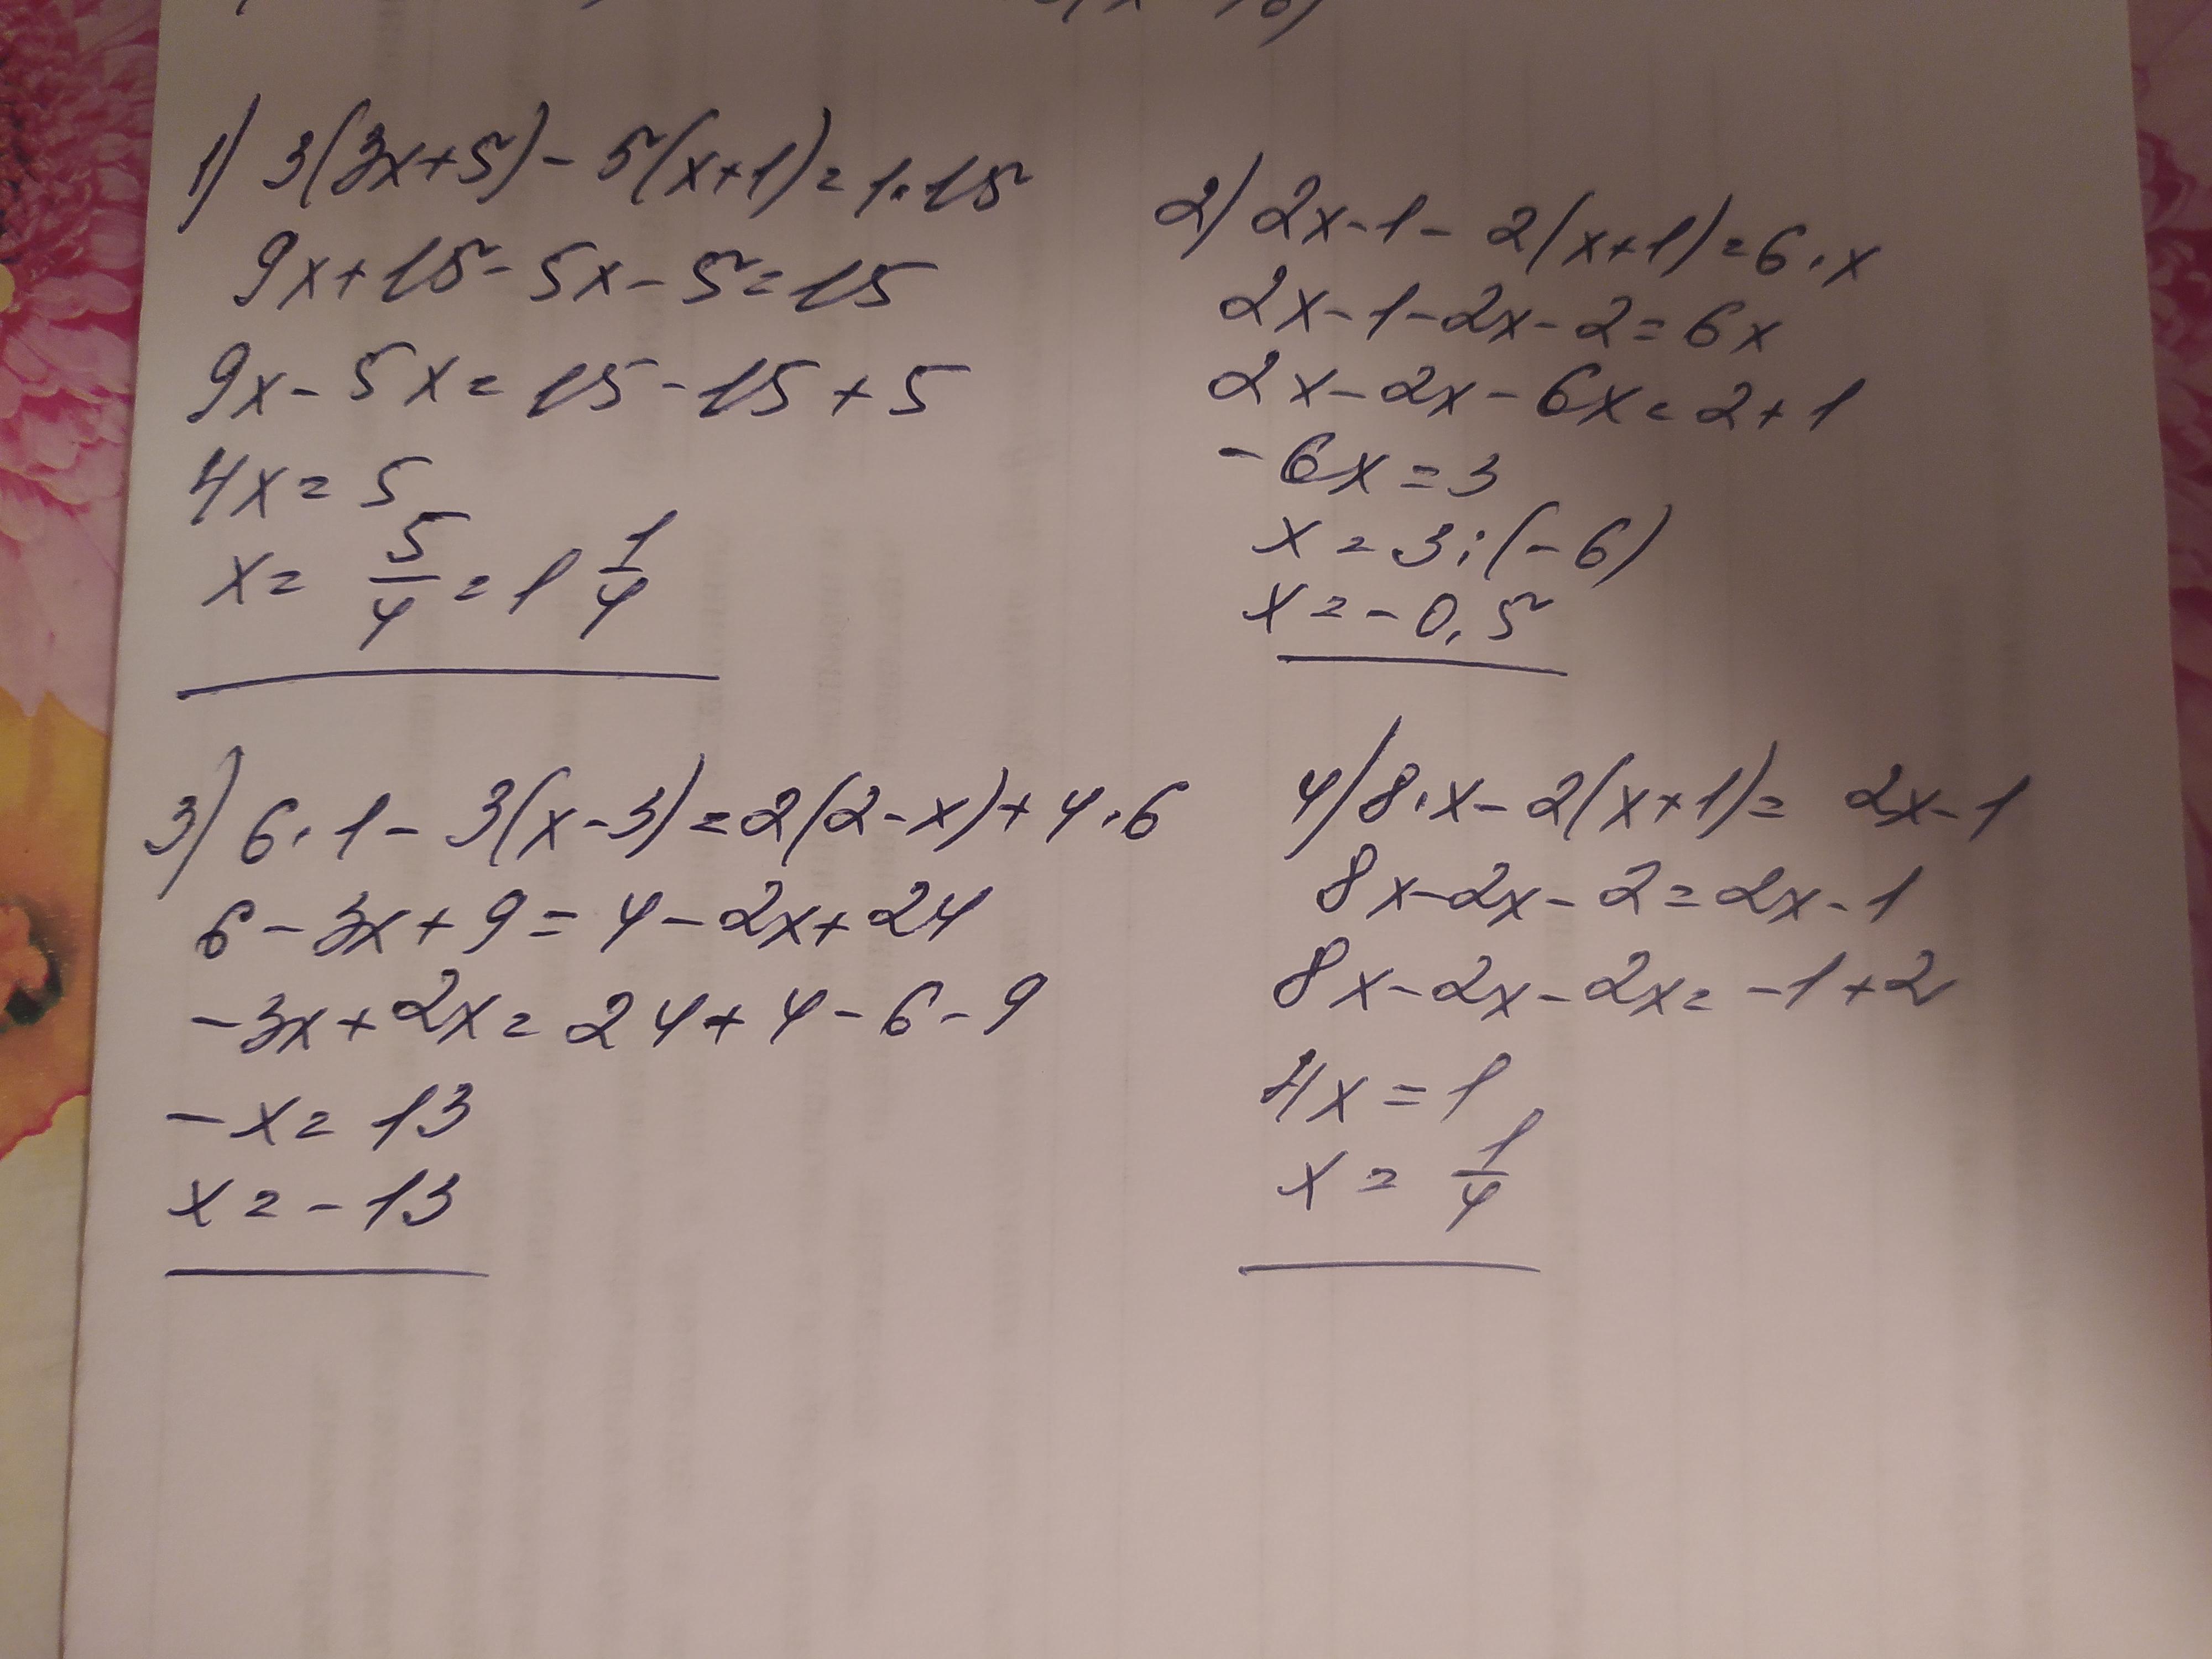 1) 3(3x+5)-5(x+1)=1·15
9x+15-5x-5=15
9x-5x=15-15+5
4x=5
x=5/4=1 1/4
2) 2x-1-2(x+1)=6·x
2x-1-2x-2=6x
2x-2x-6x=2+1
-6x=3
x=3:(-6)
x=-0,5
3) 6·1-3(x-3)=2(2-x)+4·6
6-3x+9=4-2x+24
-3x+2x=24+4-6-9
-x=13
x=-13
4) 8·x-2(x+1)=2x-1
8x-2x-2=2x-1
8x-2x-2x=-1+2
4x=1
x=1/4